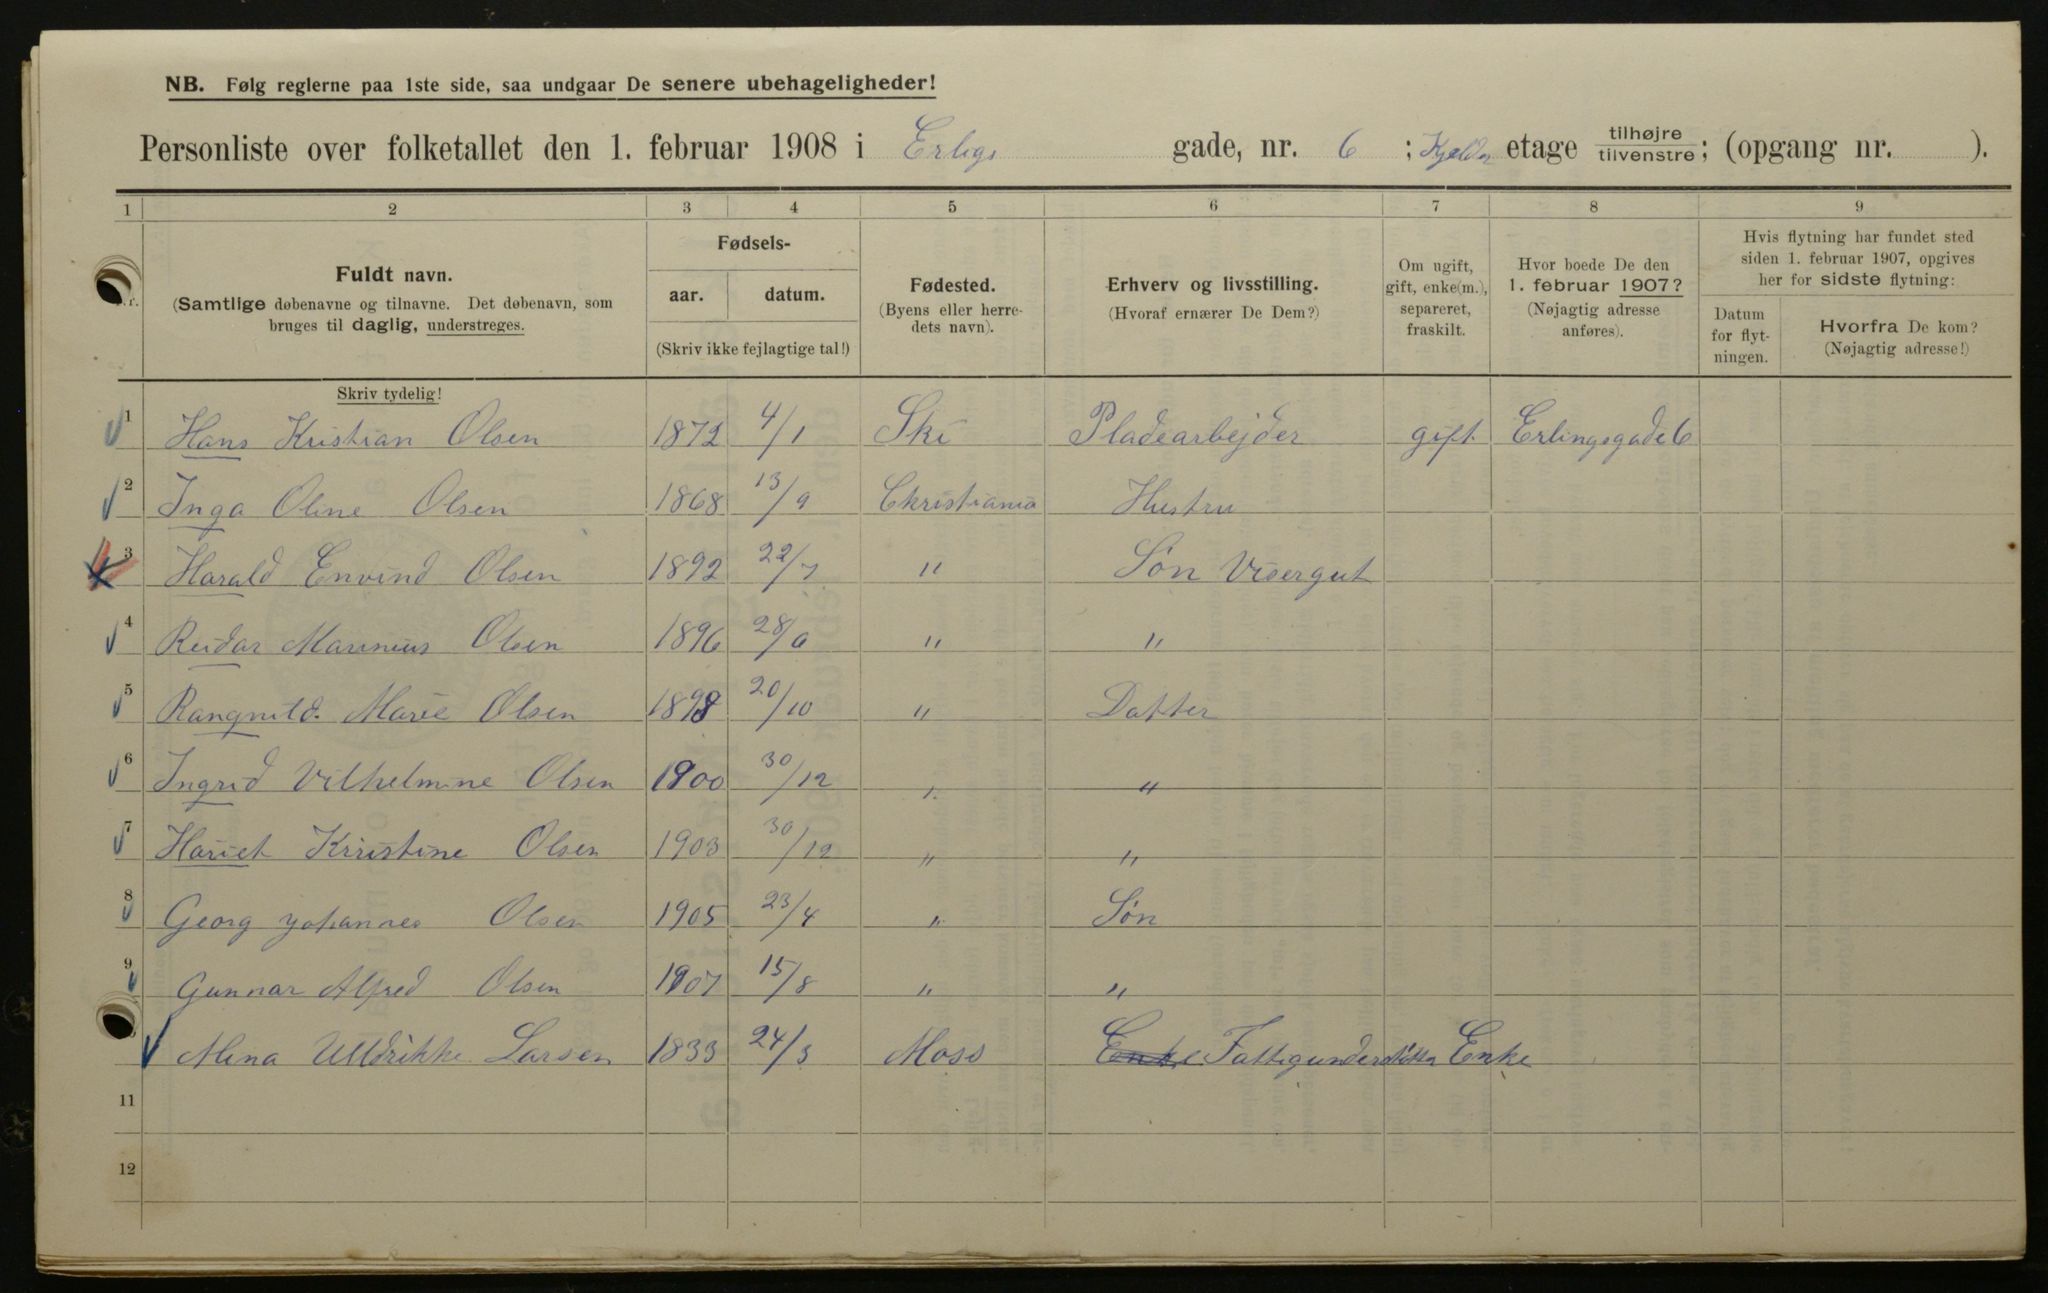 NB. Følg reglerne paa 1ste side, saa undgaar De senere ubehageligheder!
Personliste over folketallet den 1. februar 1908 i Erligs gade, nr. 6 ; Kjelder etage tilhøjre/tilvenstre; (opgang nr. ).
1 2 3 4 5 6 7 8 9
Fuldt navn.
(Samtlige døbenavne og tilnavne. Det døbenavn, som
bruges til daglig, understreges.
Skriv tydelig!
Fødsels-
aar. datum.
(Skriv ikke fejlagtige tal!)
Fødested.
(Byens eller herre-
dets navn).
Erhverv og livsstilling.
(Hvoraf ernærer De Dem?)
Om ugift,
gift, enke(m.),
separeret,
fraskilt.
Hvor boede De den
1. februar 1907?
(Nøjagtig adresse
anføres).
Hvis flytning har fundet sted
siden 1. februar 1907, opgives
her for sidste flytning:
Datum
for flyt-
ningen.
Hvorfra De kom?
(Nøjagtig adresse!)
1 Hans Kristian Olsen 1872 4/1 Ski Pladearbejder gift Erlingsgade 6
2 Inga Oline Olsen 1868 13/9 Christiania Hustru
3 Harald Envind Olsen 1892 22/7 " Søn Visergut
4 Reidar Marinius Olsen 1896 28/6 " "
5 Rangnild. Marie Olsen 1898 20/10 " Datter
6 Ingrid Vilhelmine Olsen 1900 30/12 " "
7 Hariet Kristine Olsen 1903 30/12 " "
8 Georg Johannes Olsen 1905 23/4 " Søn
9 Gunnar Alfred Olsen 1907 15/8 " "
Mina Ulldrikke Larsen 1833 24/3 Moss Enke Fattigunderstøtta Enke
11
12